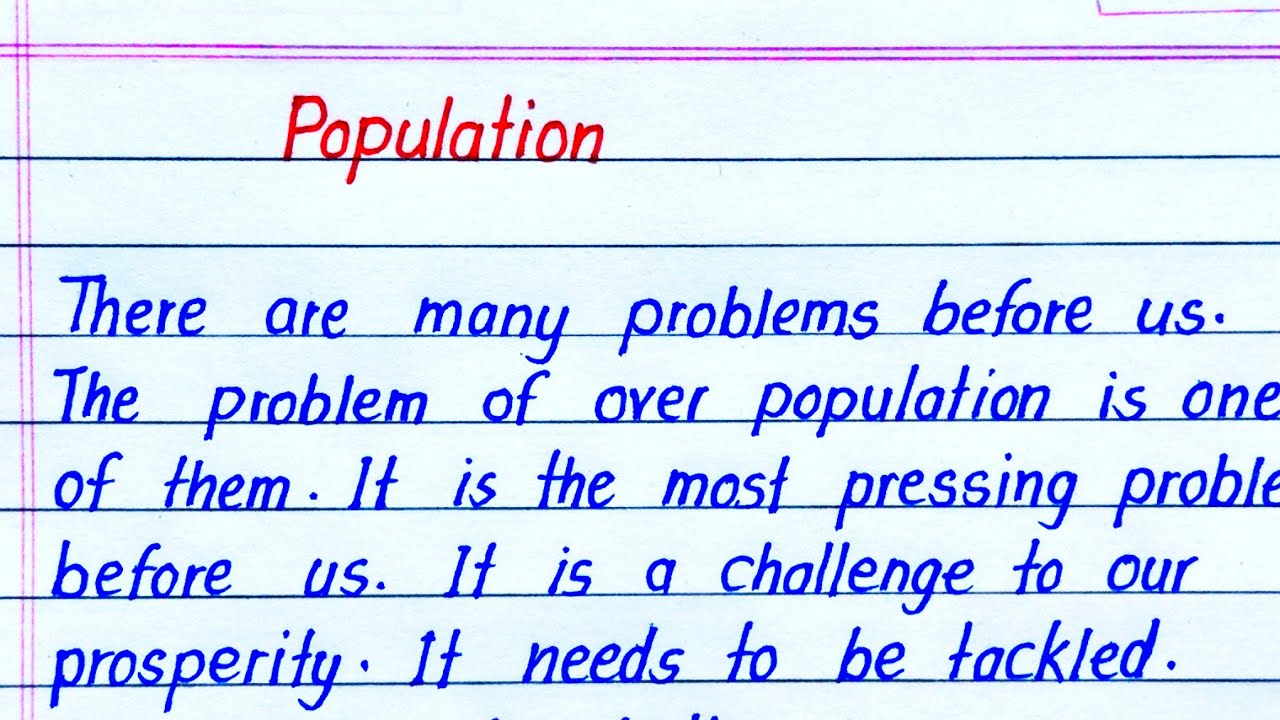 Population
There are many problems before us.
The problem of over population is one
of them. It is the most pressing proble
before us. It is a challenge to our
prosperity. It needs to be tackled.